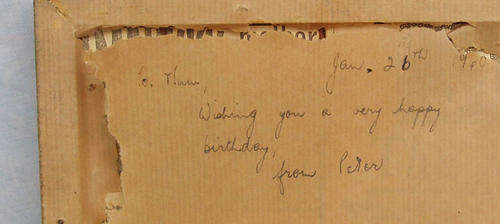 Jan. 26th
To. Mum,
Wishing you a very happy
birthday,
from Peter